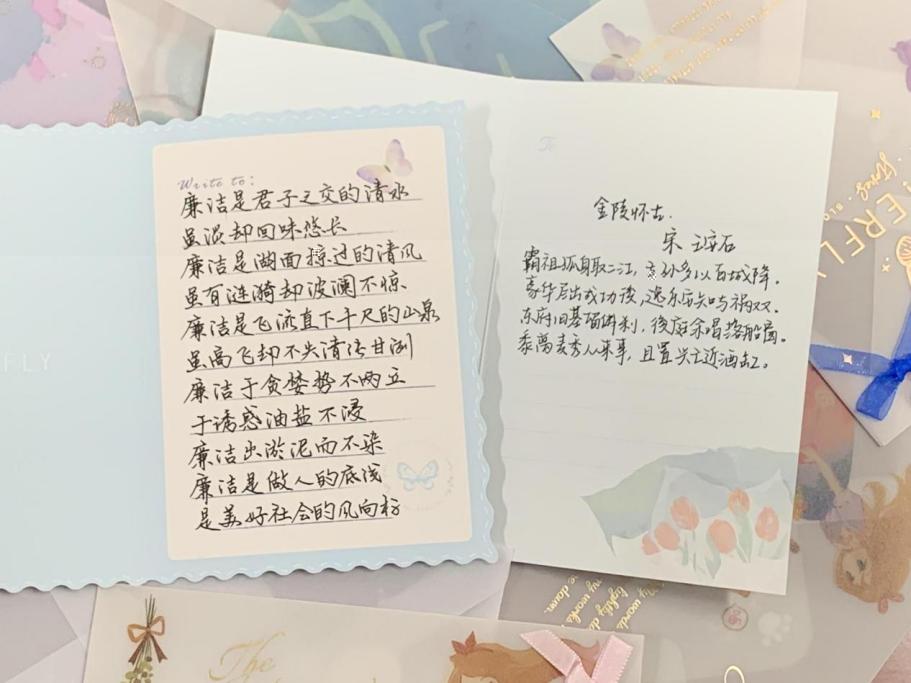 Write to:
廉洁是君子之交的清水
虽淡却回味悠长
廉洁是湖面掠过的清风
虽有涟漪却波澜不惊
廉洁是飞流直下千尺的山泉
虽高飞却不失清洁甘洌
廉洁于贪婪势不两立
于诱惑油盐不浸
廉洁出淤泥而不染
廉洁是做人的底线
是美好社会的风向标
FLY
To
金陵怀古.
宋 王安石
霸祖孤身取二江,子孙多以百城降。
豪华尽出成功後,逸乐安知与祸双。
东府旧基留佛刹,後庭余唱落船窗。
黍离麦秀从来事,且置兴亡近酒缸。
ERFLY
The
my works
lightly do